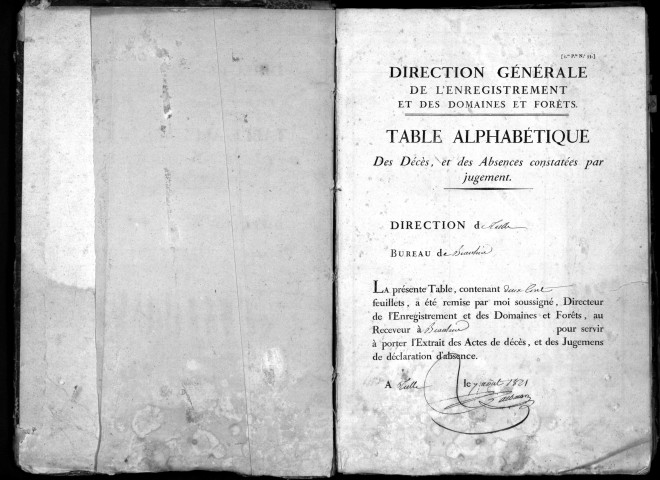 DIRECTION GÉNÉRALE
DE L'ENREGISTREMENT
ET DES DOMAINES ET FORÊTS.
TABLE ALPHABÉTIQUE
Des Décès, et des Absences constatées par
jugement.
DIRECTION de Tulle
BUREAU de Beaulieu
LA présente Table, contenant deux Cent
feuillets, a été remise par moi soussigné, Directeur
de l'Enregistrement et des Domaines et Forêts, au
Receveur à Beaulieu pour servir
à porter l'Extrait des Actes de décès, et des Jugemens
de déclaration d'absence.
A Tulle le 7 août 1821